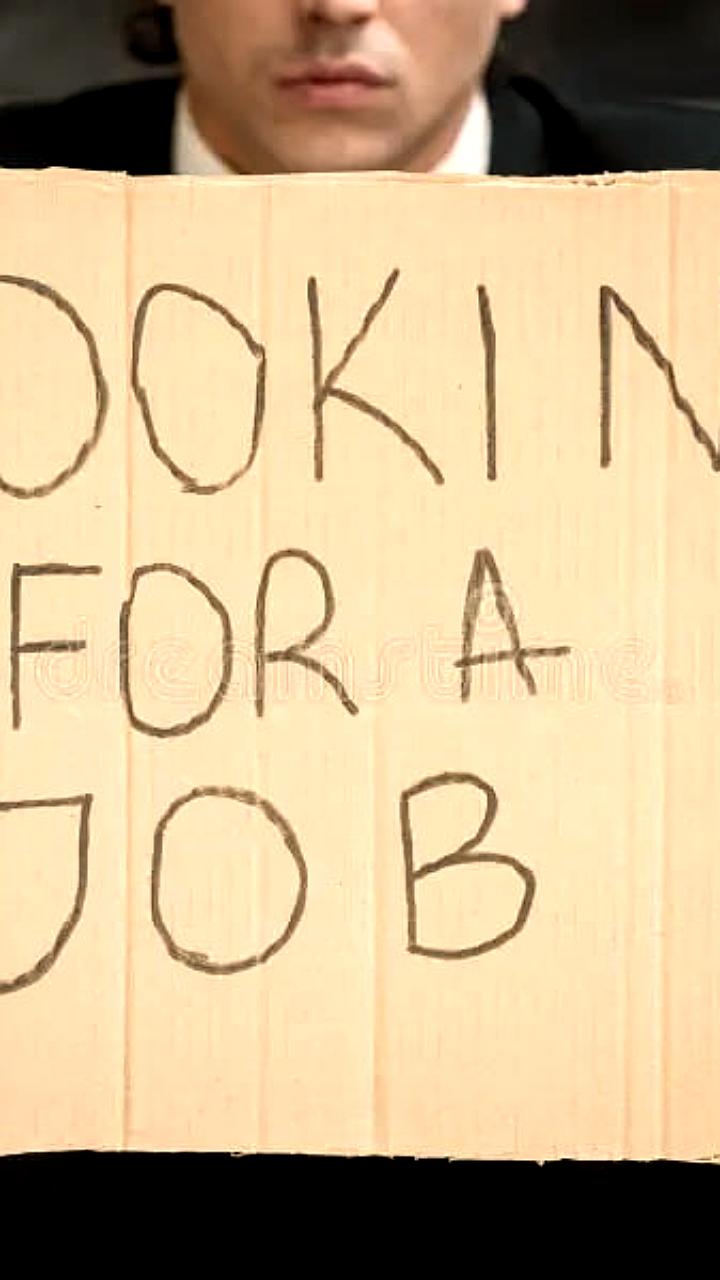 OOKIN
FOR A
JOB
dreamstime.